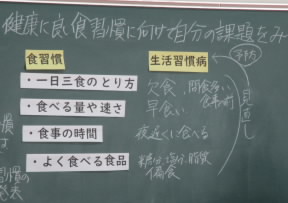 健康に良い食習慣に向けて自分の課題をみ
食習慣
・一日三食のとり方
・食べる量や速さ
・食事の時間
・よく食べる食品
生活習慣病
欠食
早食い
夜遅くに食べる
糖分 塩分 脂質
偏食
予防
見直し